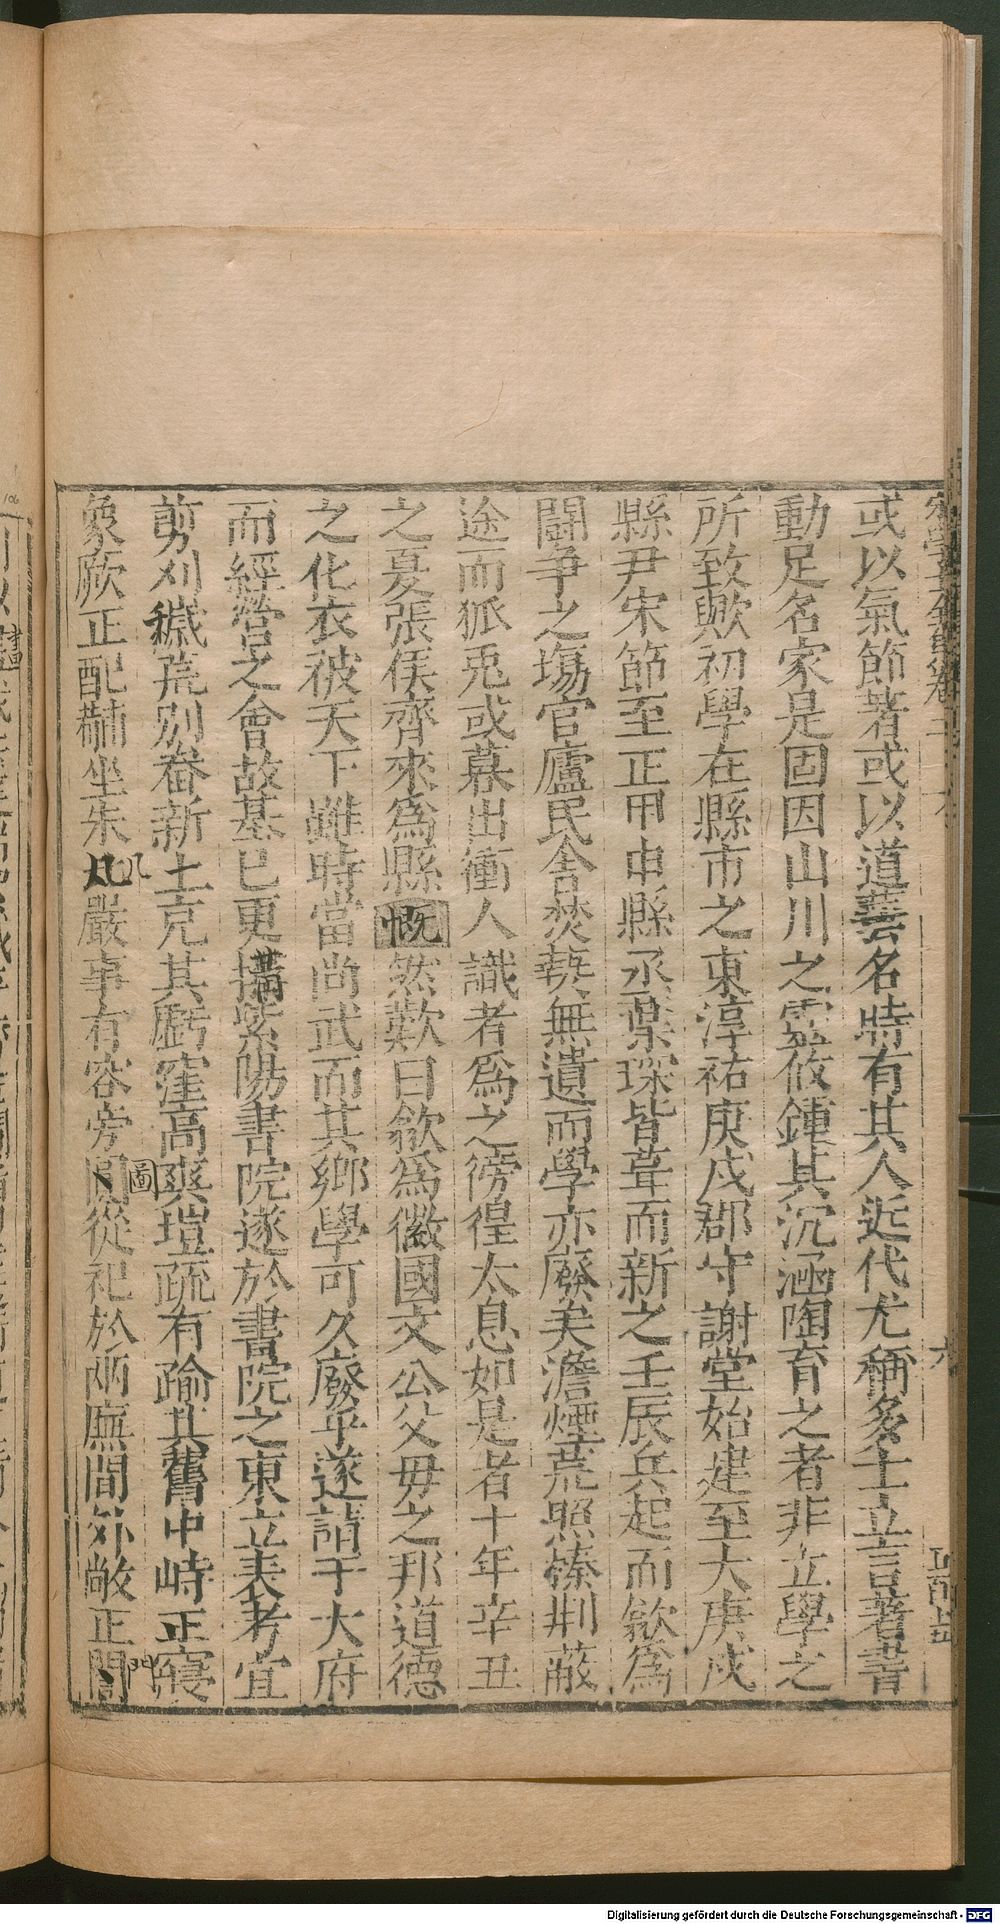 或以氣節著或以道藝名時有其人近代尤稱多士立言著書
動足名家是固因山川之靈欲鍾其沉涵陶育之者非立學之
所致歟初學在縣市之東淳祐庚戌郡守謝堂始建至大庚戌
縣尹宋節至正甲申縣丞栗琛皆葺而新之壬辰兵起而歙爲
鬪争之塲官廬民舎焚爇無遺而學亦廢矣澹煙荒照榛荆蔽
途而狐兎或暮出衝人識者爲之徬徨太息如是者十年辛丑
之夏張侯齊來爲縣慨然歎曰歙爲徽國文公父母之邦道德
之化衣被天下雖時當尚武而其鄉學可久廢乎遂請于大府
而經營之會故基已更搆紫陽書院遂於書院之東立表考宜
剪刈穢荒別畚新土充其虧窪高爽塏疏有踰其舊中峙正寑
象厥正配黼坐朱凡嚴事有容旁圖從祀於兩廡間外敞正門
几
圖
六
Digitalisierung gefördert durch die Deutsche Forschungsgemeinschaft - DFG